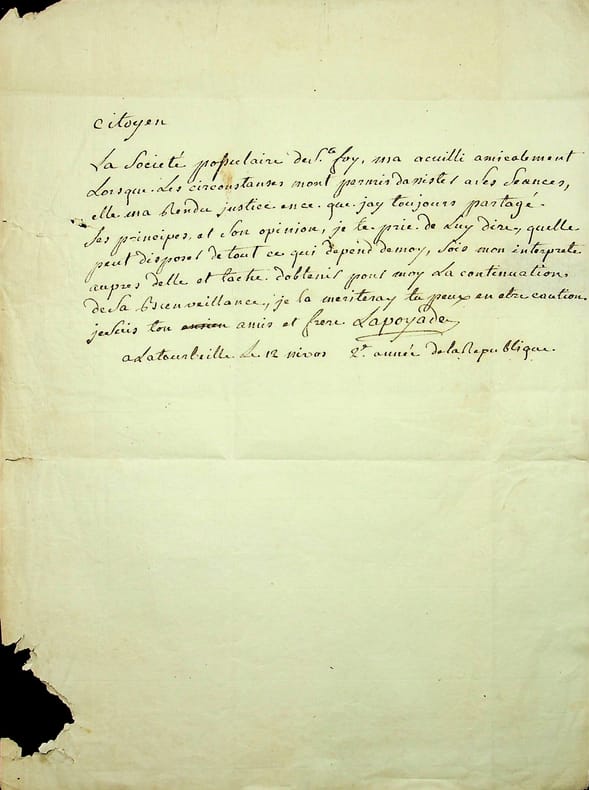 citoyen
La Societé populaire de Ste foy, ma acuilli amicalement
Lorsque Les circonstanses mont permis dasister a les Seances,
elle ma Rendu justice en ce que jay toujours partagé
ses principes, et Son opinion, je te prie de Luy dire, quelle
peut disposer de tout ce qui depend de moy, sois mon interprete
aupres delle et tache dobtenir pour moy La continuation
de Sa Bienveillance, je la meriteray tu peux en etre caution
je suis ton amis et frere Lapoyade
a Latourbeille Le 12 nivos 2e année de la Republique.